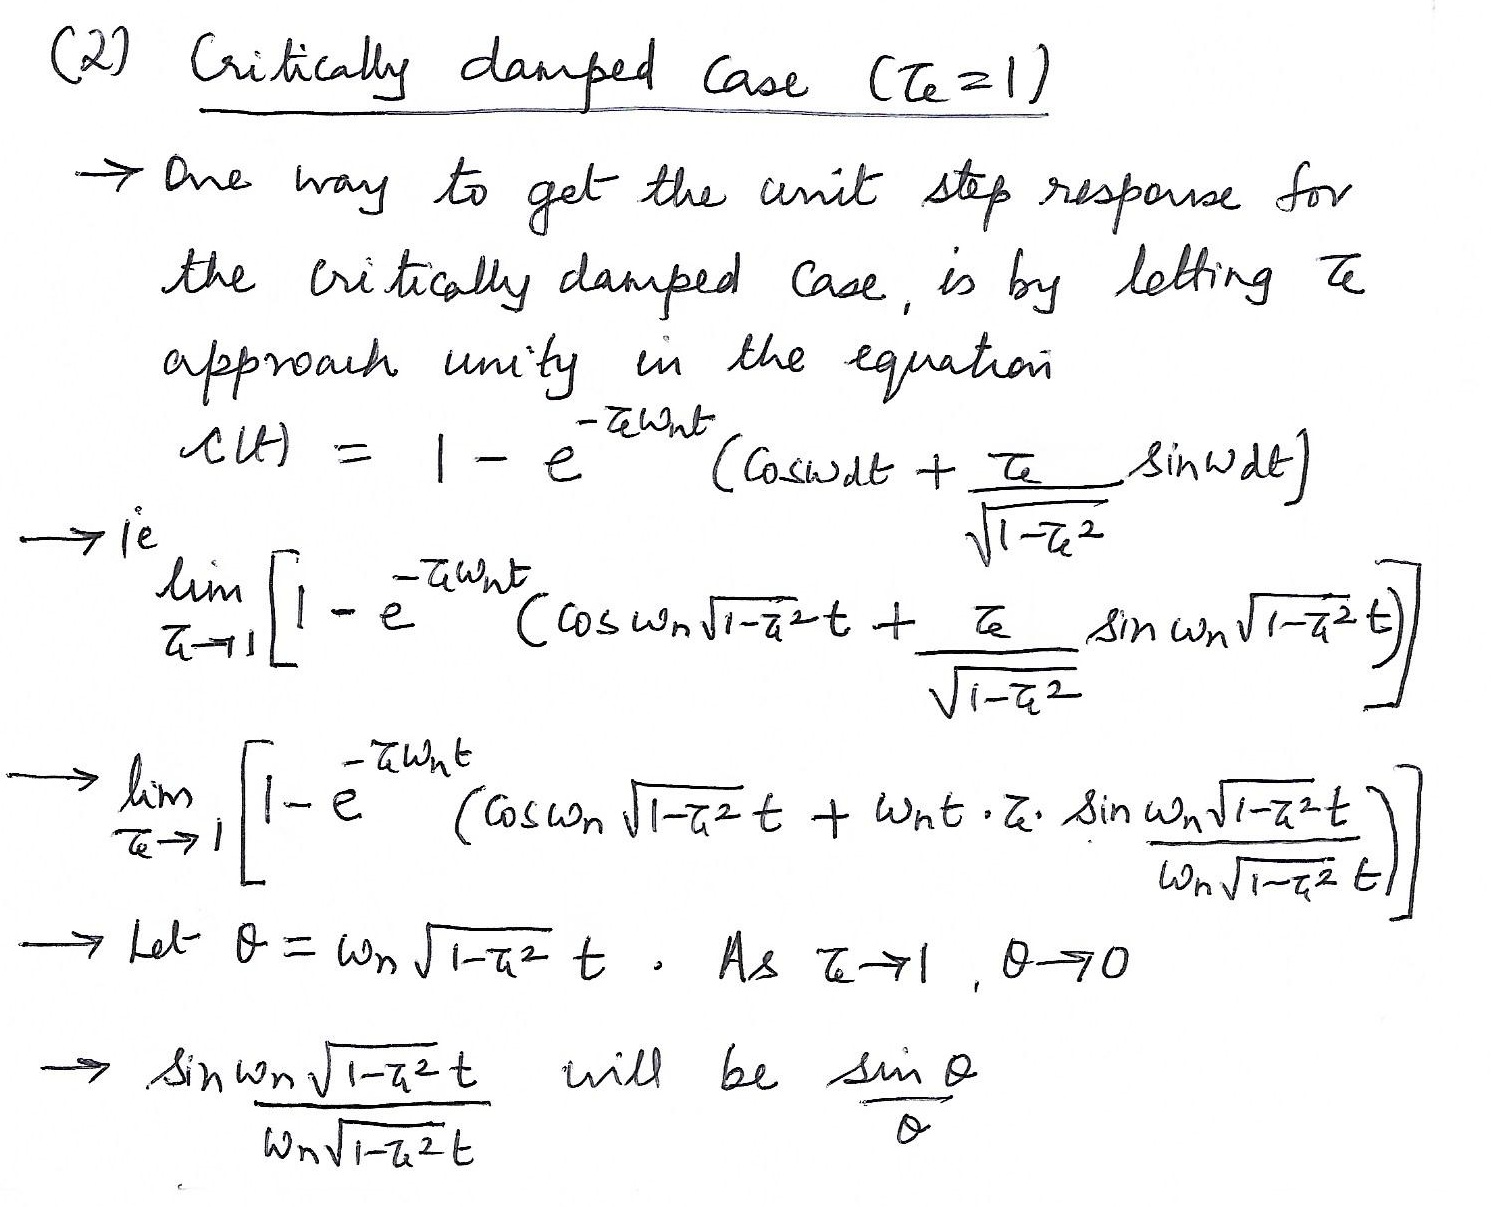 (2) Critically damped case (ζ=1)
→ One way to get the unit step response for
the critically damped case, is by letting ζ
approach unity in the equation
c(t) = 1 - e^(-ζωnt) (cosωdt + ζ/√(1-ζ²) sinωdt)
→ ie
lim ζ→1 [1 - e^(-ζωnt) (cos ωn√(1-ζ²) t + ζ/√(1-ζ²) sin ωn√(1-ζ²) t)]
→ lim ζ→1 [1 - e^(-ζωnt) (cos ωn √(1-ζ²) t + ωnt · ζ · sin ωn√(1-ζ²) t / ωn√(1-ζ²) t)]
→ Let θ = ωn √(1-ζ²) t . As ζ→1 , θ→0
→ sin ωn √(1-ζ²) t / ωn√(1-ζ²) t will be sin θ / θ